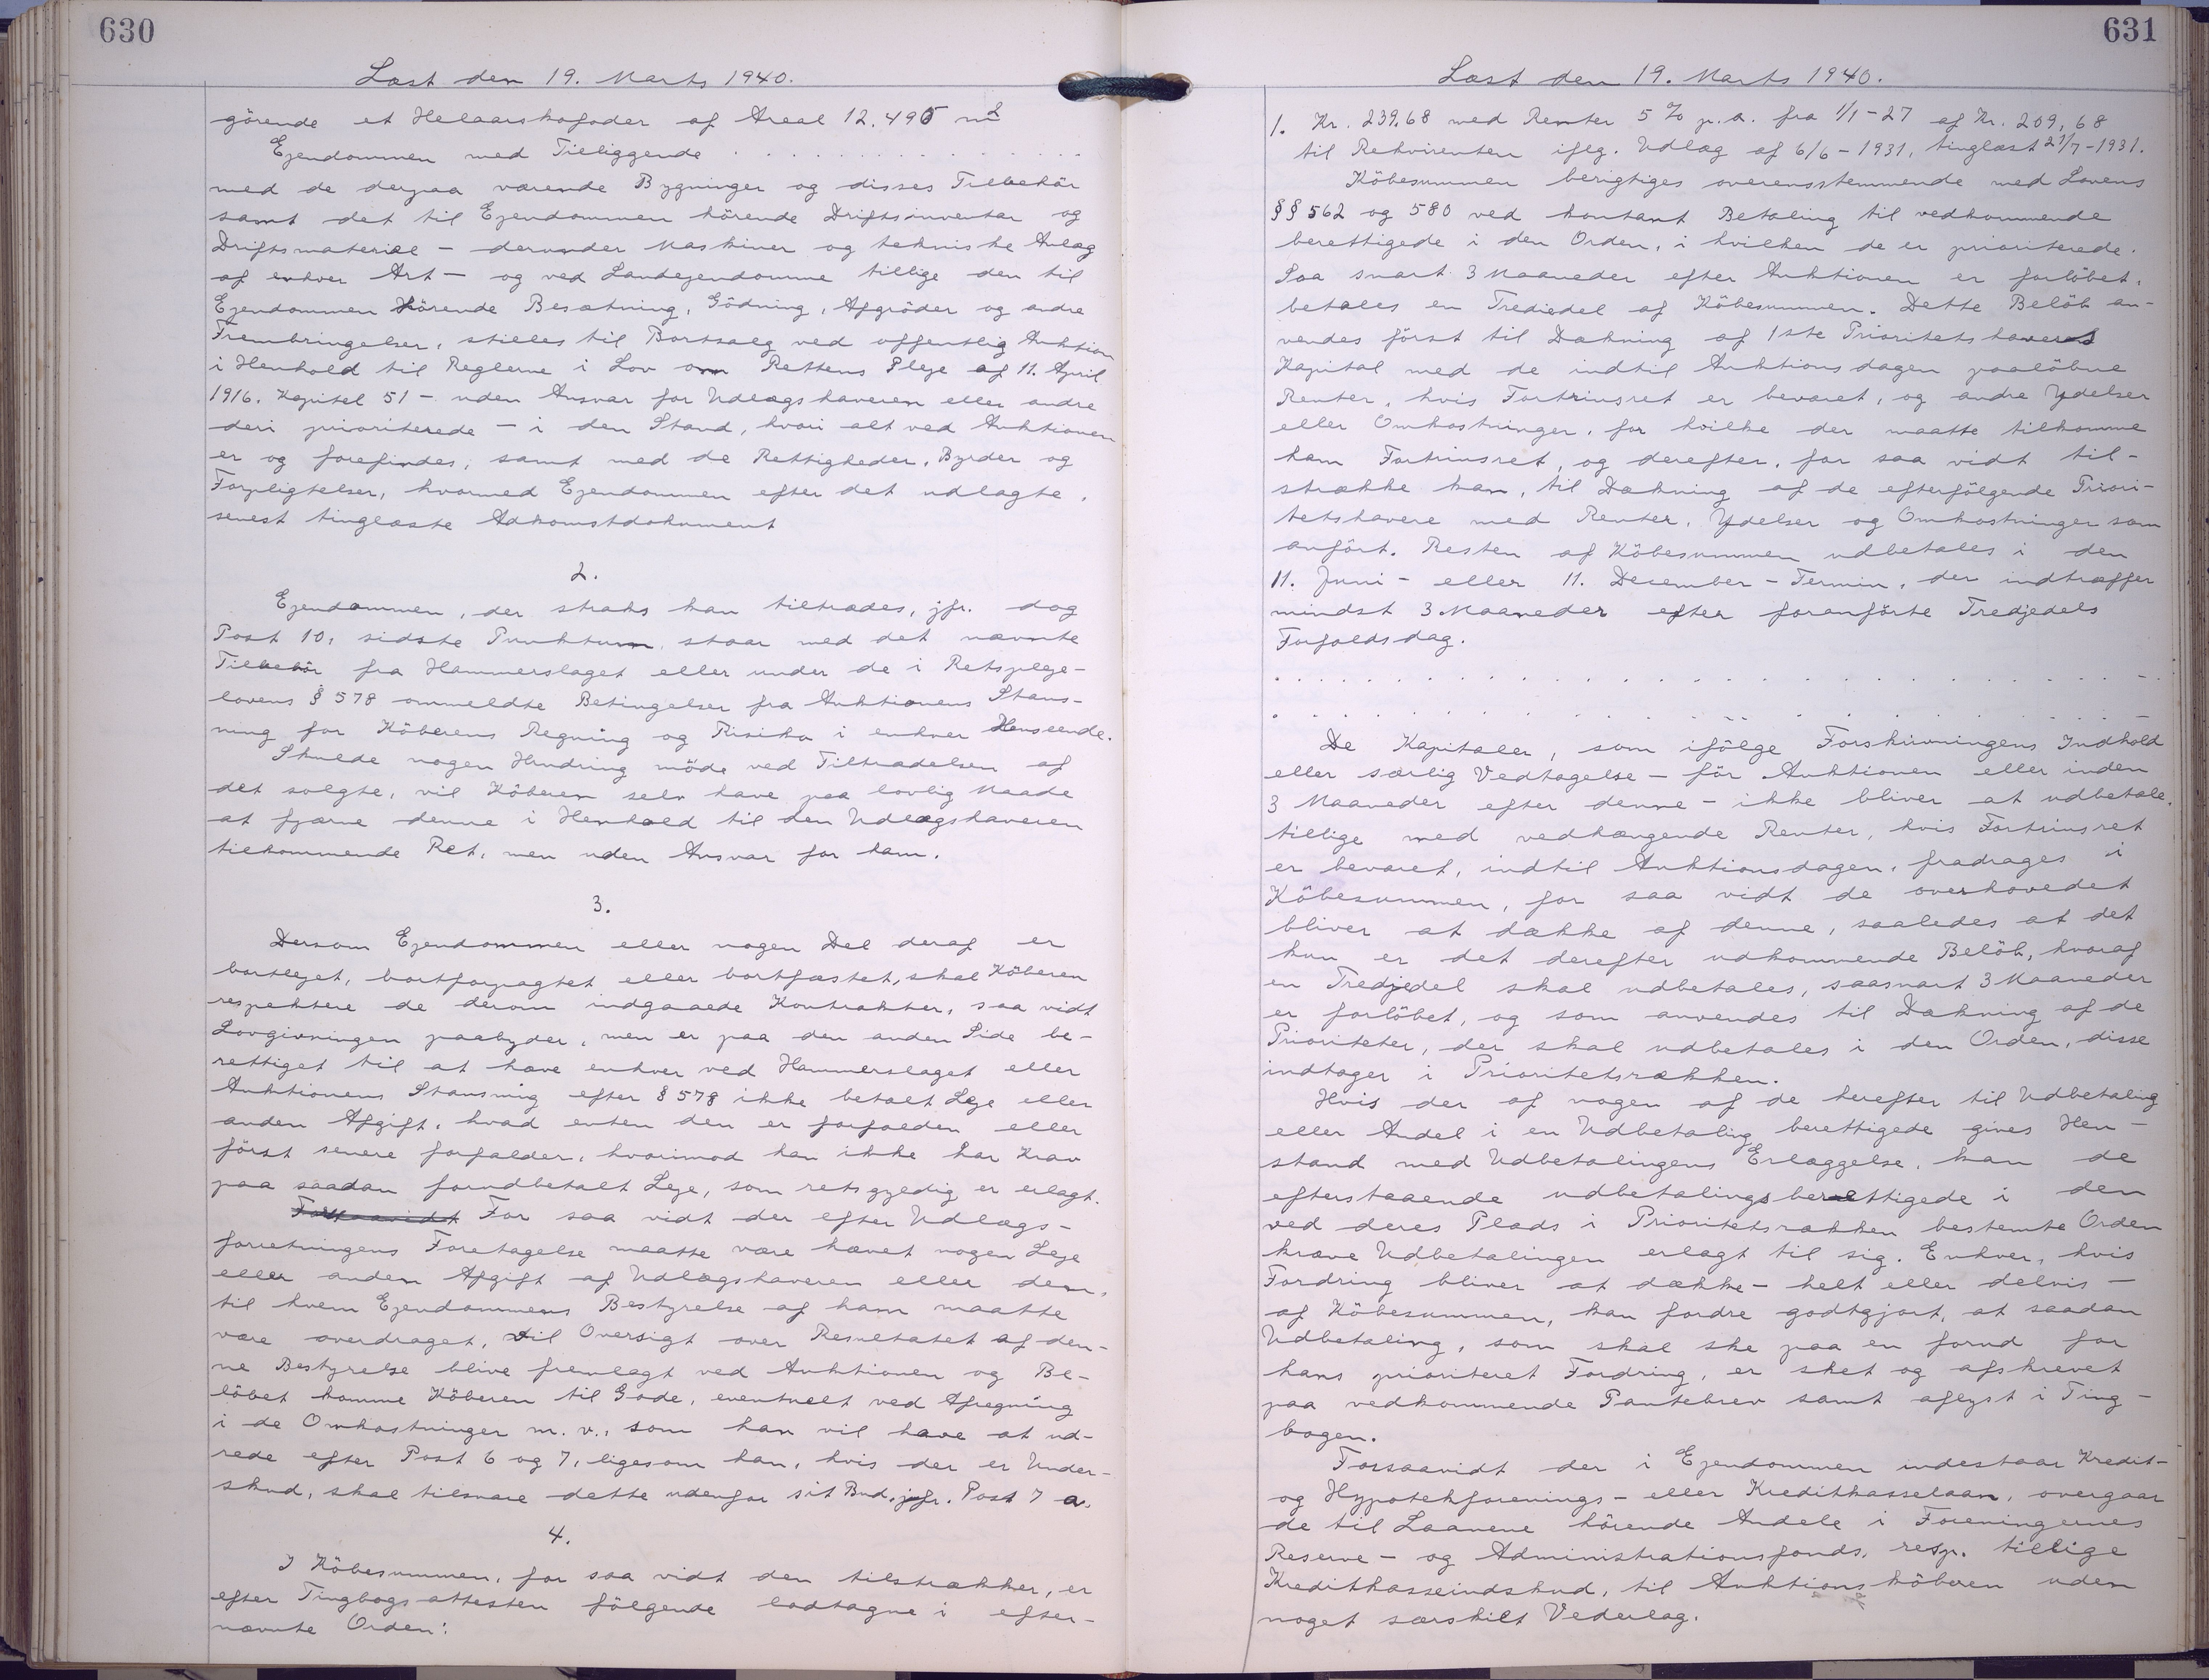 630
Læst den 19. Marts 1940.
görende et Helaarshafoder af Areal 12.495 m2
Ejendommen med Tilliggende . . . . . . . . . . . . . . . .
med de derpaa værende Bygninger og disses Tilbehör
samt det til Ejendommen hörende Driftsinventar og
Driftsmateriel - derunder Maskiner og tekniske Anlæg
af enhver Art - og ved Landejendomme tillige den til
Ejendommen hörende Besætning, Gödning, Afgröder og andre
Frembringelser, stilles til Bortsalg ved offentlig Auktion
i Henhold til Reglerne i Lov om Rettens Pleje af 11. April
1916. Kapitel 51 - uden Ansvar for Udlægshaveren eller andre
deri prioriterede - i den Stand, hvori alt ved Auktionen
er og forefindes, samt med de Rettigheder, Byrder og
Forpligtelser, hvormed Ejendommen efter det udlagte,
senest tinglæste Adkomstdokument
2.
Ejendommen, der straks kan tiltrædes, jfr. dog
Post 10, sidste Punktum, staar med det nævnte
Tilbehör fra Hammerslaget eller under de i Retspleje-
lovens § 578 ommeldte Betingelser fra Auktionens Stans-
ning for Köberens Regning og Risiko i enhver Henseende.
Skulde nogen Hindring möde ved Tiltrædelsen af
det solgte, vil Köberen selv have paa lovlig Maade
at fjærne denne i Henhold til den Udlægshaveren
tilkommende Ret, men uden Ansvar for ham.
3.
Dersom Ejendommen eller nogen Del deraf er
bortlejet, bortforpagtet eller bortfæstet, skal Köberen
respektere de derom indgaaede Kontrakter, saa vidt
Lovgivningen paabyder, men er paa den anden Side be-
rettiget til at hæve enhver ved Hammerslaget eller
Auktionens Stansning efter § 578 ikke betalt Leje eller
anden Afgift, hvad enten den er forfalden eller
först senere forfalder, hvorimod han ikke har Krav
paa saadan forudbetalt Leje, som retsgyldig er erlagt.
Forsaavidt For saa vidt der efter Udlægs-
forretningens Foretagelse maatte være hævet nogen Leje
eller anden Afgift af Udlægshaveren eller den,
til hvem Ejendommens Bestyrelse af ham maatte
være overdraget, vil Oversigt over Resultatet af den-
ne Bestyrelse blive fremlagt ved Auktionen og Be-
löbet komme Köberen til Gode, eventuelt ved Afregning
i de Omkostninger m. v., som han vil have at ud-
rede efter Post 6 og 7, ligesom han, hvis der er Under-
skud, skal tilsvare dette udenfor sit Bud, jfr. Post 7 a.
4.
I Köbesummen, for saa vidt den tilstrækker, er
efter Tingbogsattesten fölgende lodtagne i efter-
nævnte Orden:
631
Læst den 19. Marts 1940.
1. Kr. 239,68 med Renter 5 % p.a. fra 1/1-27 af Kr. 209,68
til Rekvirenten iflg. Udlæg af 6/6-1931, tinglæst 21/7-1931.
Köbesummen berigtiges overensstemmende med Lovens
§§ 562 og 580 ved kontant Betaling til vedkommende
berettigede i den Orden, i hvilken de er prioriterede.
Saa snart 3 Maaneder efter Auktionen er forlöbet,
betales en Trediedel af Köbesummen. Dette Belöb an-
vendes först til Dækning af 1ste Prioritetshavers
Kapital med de indtil Auktionsdagen paalöbne
Renter, hvis Fortrinsret er bevaret, og andre Ydelser
eller Omkostninger, for hvilke der maatte tilkomme
ham Fortrinsret, og derefter, for saa vidt til-
strække kan, til Dækning af de efterfölgende Priori-
tetshavere med Renter, Ydelser og Omkostninger som
anfört. Resten af Köbesummen udbetales i den
11. Juni - eller 11. December - Termin, der indtræffer
mindst 3 Maaneder efter foranförte Tredjedels
Forfaldsdag.
. . . . . . . . . . . . . . . . . . . .
. . . . . . . . . . . . . . . . . . . .
De Kapitaler, som ifölge Forskrivningens Indhold
eller særlig Vedtagelse - för Auktionen eller inden
3 Maaneder efter denne - ikke bliver at udbetale,
tillige med vedhængende Renter, hvis Fortrinsret
er bevaret, indtil Auktionsdagen, fradrages i
Köbesummen, for saa vidt de overhovedet
bliver at dække af denne, saaledes at det
kun er det derefter udkommende Belöb, hvoraf
en Tredjedel skal udbetales, saasnart 3 Maaneder
er forlöbet, og som anvendes til Dækning af de
Prioriteter, der skal udbetales i den Orden, disse
indtager i Prioritetsrækken.
Hvis der af nogen af de herefter til Udbetaling
eller Andel i en Udbetaling berettigede gives Hen-
stand med Udbetalingens Erlæggelse, kan de
efterstaaende udbetalingsberettigede i den
ved deres Plads i Prioritetsrækken bestemte Orden
kræve Udbetalingen erlagt til sig. Enhver, hvis
Fordring bliver at dække - helt eller delvis -
af Köbesummen, kan fordre godtgjort, at saadan
Udbetaling, som skal ske paa en forud for
hans prioriteret Fordring, er sket og afskrevet
paa vedkommende Pantebrev samt aflyst i Ting-
bogen.
Forsaavidt der i Ejendommen indestaar Kredit-
og Hypotekforenings - eller Kreditkasselaan, overgaar
de til Laanene hörende Andele i Foreningernes
Reserve - og Administrationsfonds, resp. tillige
Kreditkasseindskud, til Auktionsköberen uden
noget særskilt Vederlag.